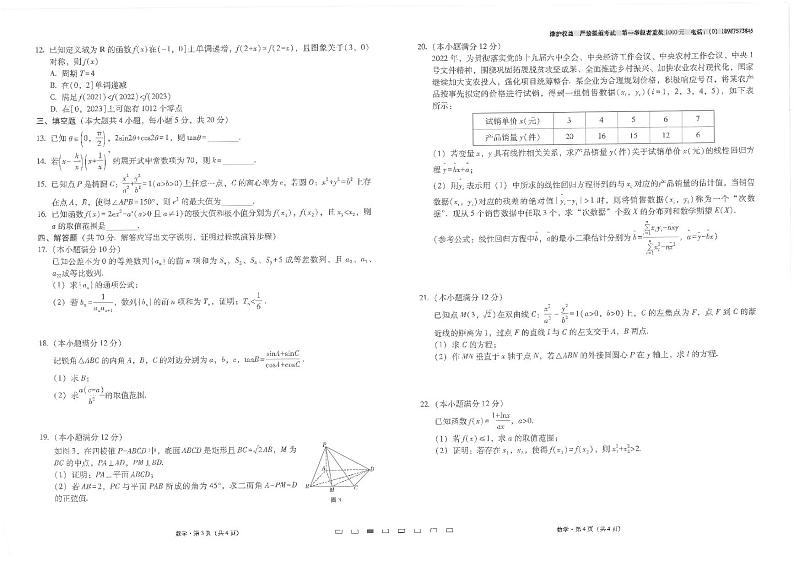 12. 已知定义域为 R 的函数f(x)在(-1, 0]上单调递增, f(2+x)=f(2-x), 且图象关于(3, 0)
对称, 则f(x)
A. 周期 T=4
B. 在(0, 2]单调递减
C. 满足f(2021)<f(2022)<f(2023)
D. 在[0, 2023]上可能有 1012 个零点
三、填空题（本大题共 4 小题, 每小题 5 分, 共 20 分）
13. 已知 θ∈(0, π/2), 2sin2θ+cos2θ=1, 则 tanθ=
14. 若(x-k/x)(x+1/x)的展开式中常数项为 70, 则 k=
15. 已知点 P 是椭圆 C: x²/a²+y²/b²=1(a>b>0)上任意一点, C 的离心率为 e, 若圆 O: x²+y²=b²上存
在点 A, B, 使得∠APB=150°, 则 e²的最大值为
16. 已知函数f(x)=2ex²-aˣ(a>0且a≠1)的极大值和极小值分别为f(x₁), f(x₂), 且 x₁<x₂, 则
a 的取值范围是
四、解答题（共 70 分. 解答应写出文字说明, 证明过程或演算步骤）
17. （本小题满分 10 分）
已知公差不为 0 的等差数列{aₙ}的前 n 项和为 Sₙ, S₂, S₄, S₅+5 成等差数列, 且
成等比数列.
（1）求{aₙ}的通项公式;
（2）若 bₙ=1/(aₙaₙ₊₁), 数列{bₙ}的前 n 项和为 Tₙ, 证明: Tₙ<1/6.
18. （本小题满分 12 分）
记锐角△ABC 的内角 A, B, C 的对边分别为 a, b, c, tanB=(sinA+sinC)/(cosA+cosC).
（1）求 B;
（2）求 a(c-a)/b² 的取值范围.
19. （本小题满分 12 分）
如图 3, 在四棱锥 P-ABCD 中, 底面 ABCD 是矩形且 BC=√2AB, M 为
BC 的中点, PA⊥AD, PM⊥BD.
（1）证明: PA⊥平面 ABCD;
（2）若 AB=2, PC 与平面 PAB 所成的角为 45°, 求二面角 A-PM-D
的正弦值.
P
A
D
B
M
C
图 3
数学·第 3 页（共 4 页）
20. （本小题满分 12 分）
2022 年, 为贯彻落实党的十九届六中全会、中央经济工作会议、中央农村工作会议, 中央 1
号文件精神, 围绕巩固拓展脱贫攻坚成果、全面推进乡村振兴、加快农业农村现代化, 国家
继续加大支农投入, 强化项目统筹整合. 某企业为合理规划价格, 积极响应号召, 将某农产
品按事先拟定的价格进行试销, 得到一组销售数据(xᵢ, yᵢ)(i=1, 2, 3, 4, 5), 如下表
所示:
试销单价 x(元) 3 4 5 6 7
产品销量 y(件) 20 16 15 12 6
（1）若变量 x, y 具有线性相关关系, 求产品销量 y(件)关于试销单价 x(元)的线性回归方
程 ŷ=b̂x+â;
（2）用ŷᵢ表示用（1）中所求的线性回归方程得到的与 xᵢ 对应的产品销量的估计值, 当销售
数据(xᵢ, yᵢ)对应的残差的绝对值|ŷᵢ-yᵢ|>1 时, 则将销售数据(xᵢ, yᵢ)称为一个“次数
据”. 现从 5 个销售数据中任取 3 个, 求“次数据”个数 X 的分布列和数学期望 E(X).
（参考公式: 线性回归方程中b̂, â的最小二乘估计分别为 b̂=(Σxᵢyᵢ-nx̄ȳ)/(Σxᵢ²-nx̄²), â=ȳ-b̂x̄）
21. （本小题满分 12 分）
已知点 M(3, √2)在双曲线 C: x²/a²-y²/b²=1(a>0, b>0)上, C 的左焦点为 F, 点 F 到 C 的渐
近线的距离为 1, 过点 F 的直线 l 与 C 的左支交于 A, B 两点.
（1）求 C 的方程;
（2）作 MN 垂直于 x 轴于点 N, 若△ABN 的外接圆圆心 P 在 y 轴上, 求 l 的方程.
22. （本小题满分 12 分）
已知函数f(x)=(1+lnx)/(ax), a>0.
（1）若f(x)≤1, 求 a 的取值范围;
（2）证明: 若存在 x₁, x₂, 使得f(x₁)=f(x₂), 则 x₁²+x₂²>2.
数学·第 4 页（共 4 页）